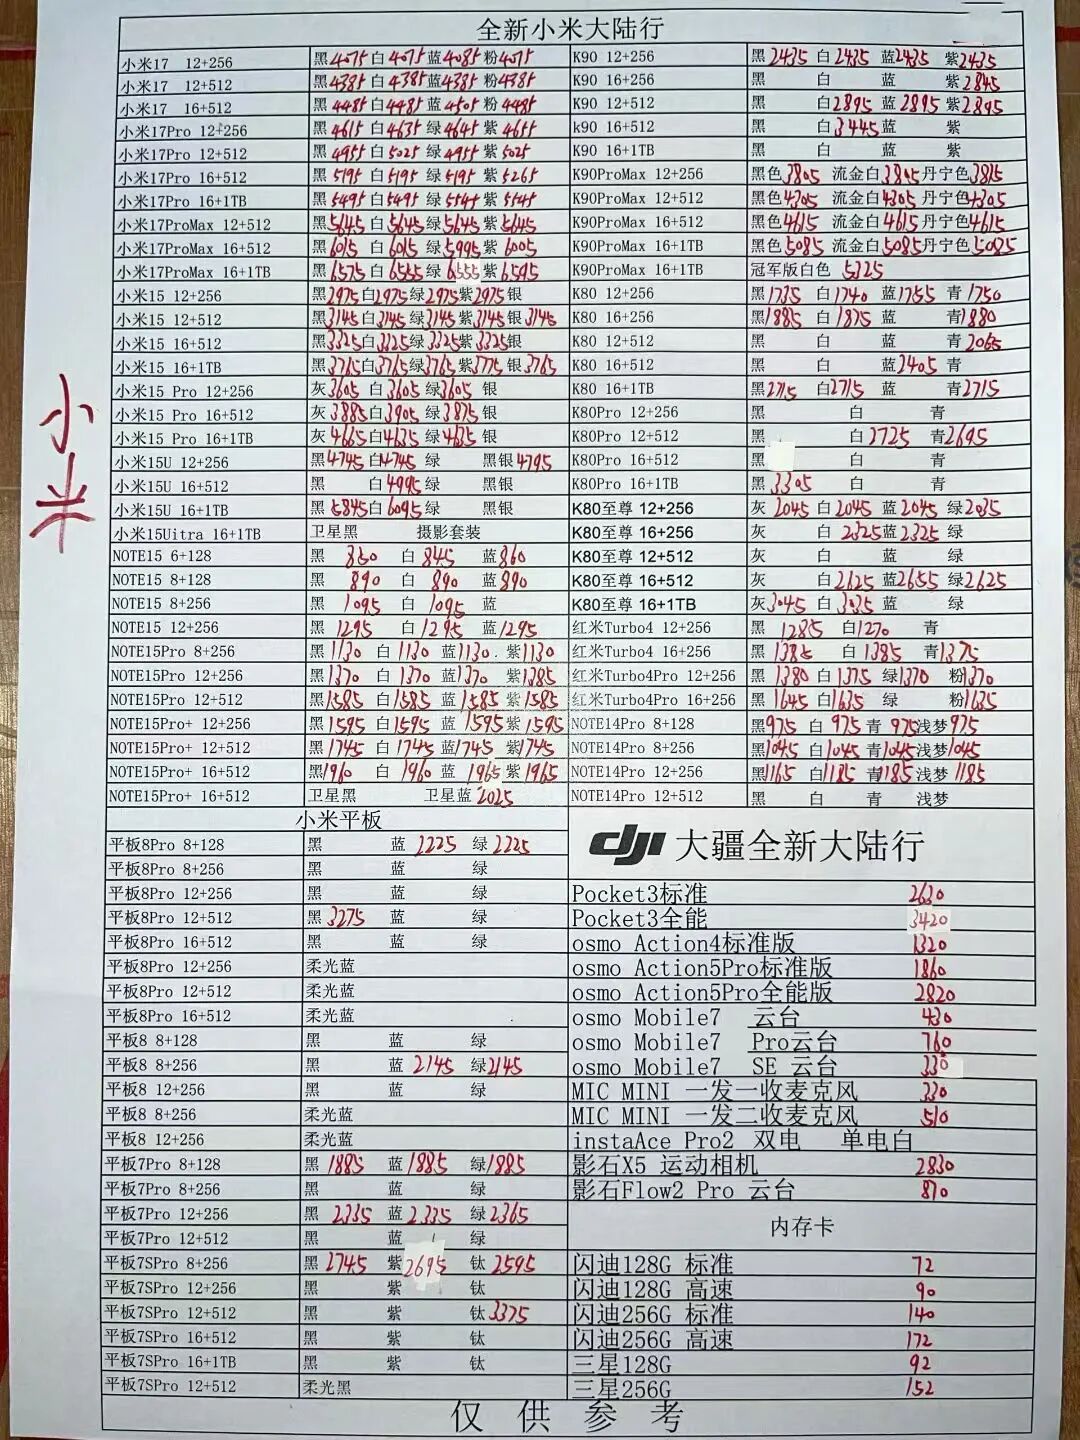 全新小米大陆行
小米
小米17 12+256 黑4075白4075蓝4085粉4075 K90 12+256 黑2435 白2435 蓝2435 紫2435
小米17 12+512 黑4385白4385蓝4385粉4385 K90 16+256 黑 白 蓝 紫2845
小米17 16+512 黑4485白4485蓝4505粉4485 K90 12+512 黑 白2895蓝2895紫2895
小米17Pro 12+256 黑4615白4635绿4645紫4655 k90 16+512 黑 白3445蓝 紫
小米17Pro 12+512 黑4955白5025绿4955紫5025 K90 16+1TB 黑 白 蓝 紫
小米17Pro 16+512 黑5195白5195绿5195紫5265 K90ProMax 12+256 黑色3805 流金白3805丹宁色3815
小米17Pro 16+1TB 黑5495白5495绿5545紫5545 K90ProMax 12+512 黑色4305 流金白4305丹宁色4305
小米17ProMax 12+512 黑5645白5645绿5645紫5645 K90ProMax 16+512 黑色4615 流金白4615丹宁色4615
小米17ProMax 16+512 黑6015白6015绿5995紫6005 K90ProMax 16+1TB 黑色5085 流金白5085丹宁色5085
小米17ProMax 16+1TB 黑6575白6555绿6555紫6595 K90ProMax 16+1TB 冠军版白色 5325
小米15 12+256 黑2975白2975绿2975紫2975银 K80 12+256 黑1735 白1740 蓝1755 青1750
小米15 12+512 黑3145白3145绿3145紫3145银3145 K80 16+256 黑1885 白1875 蓝 青1880
小米15 16+512 黑3325白3325绿3325紫3325银 K80 12+512 黑 白 蓝 青2065
小米15 16+1TB 黑3765白3765绿3765紫3775银3765 K80 16+512 黑 白 蓝2405 青
小米15 Pro 12+256 灰3605 白3605绿3605 银 K80 16+1TB 黑2715 白2715 青2715
小米15 Pro 16+512 灰3885白3905绿3875银 K80Pro 12+256 黑 白 青
小米15 Pro 16+1TB 灰4665白4635绿4635银 K80Pro 12+512 黑 白2725 青2695
小米15U 12+256 黑4745白4745绿 黑银4795 K80Pro 16+512 黑 白 青
小米15U 16+512 黑 白4995绿 黑银 K80Pro 16+1TB 黑3305 白 青
小米15U 16+1TB 黑5845白6095绿 黑银 K80至尊 12+256 灰2045 白2045 蓝2045 绿2035
小米15Uitra 16+1TB 卫星黑 摄影套装 K80至尊 16+256 灰 白2325蓝2325绿
NOTE15 6+128 黑 860 白845 蓝860 K80至尊 12+512 灰 白 蓝 绿
NOTE15 8+128 黑 890 白 890 蓝890 K80至尊 16+512 灰 白2625蓝2655 绿2625
NOTE15 8+256 黑 1095 白 1095 蓝 K80至尊 16+1TB 灰3045 白3035蓝 绿
NOTE15 12+256 黑 1295 白1295 蓝1295 红米Turbo4 12+256 黑 1285 白1270 青
NOTE15Pro 8+256 黑1130 白1130 蓝1130 紫1130 红米Turbo4 16+256 黑1385 白1385 青1375
NOTE15Pro 12+256 黑1370 白1370 蓝1370 紫1385 红米Turbo4Pro 12+256 黑1380 白1375 绿1370 粉1370
NOTE15Pro 12+512 黑1585白1585 蓝1585紫1585 红米Turbo4Pro 16+256 黑1645白1635 绿 粉1635
NOTE15Pro+ 12+256 黑1595白1595 蓝1595紫1595 NOTE14Pro 8+128 黑975 白975青975浅梦975
NOTE15Pro+ 12+512 黑1745 白1745蓝1745 紫1745 NOTE14Pro 8+256 黑1045 白1045 青1045浅梦1045
NOTE15Pro+ 16+512 黑1960 白1960 蓝1965紫1965 NOTE14Pro 12+256 黑1165 白1185 青1185 浅梦1185
NOTE15Pro+ 16+512 卫星黑 卫星蓝2025 NOTE14Pro 12+512 黑 白 青 浅梦
小米平板
平板8Pro 8+128 黑 蓝2225 绿2225
平板8Pro 8+256 黑 蓝 绿
平板8Pro 12+256 黑 蓝 绿
平板8Pro 12+512 黑3275 蓝 绿
平板8Pro 16+512 黑 蓝 绿
平板8Pro 12+256 柔光蓝
平板8Pro 12+512 柔光蓝
平板8Pro 16+512 柔光蓝
平板8 8+128 黑 蓝 绿
平板8 8+256 黑 蓝2145 绿2145
平板8 12+256 黑 蓝 绿
平板8 8+256 柔光蓝
平板8 12+256 柔光蓝
平板7Pro 8+128 黑1885 蓝1885 绿1885
平板7Pro 8+256 黑 蓝 绿
平板7Pro 12+256 黑2335 蓝2335 绿2365
平板7Pro 12+512 黑 蓝 绿
平板7SPro 8+256 黑2745 紫2695 钛2595
平板7SPro 12+256 黑 紫 钛
平板7SPro 12+512 黑 紫 钛3375
平板7SPro 16+512 黑 紫 钛
平板7SPro 16+1TB 黑 紫 钛
平板7SPro 12+512 柔光黑
dji 大疆全新大陆行
Pocket3标准 2630
Pocket3全能 3420
osmo Action4标准版 1320
osmo Action5Pro标准版 1860
osmo Action5Pro全能版 2820
osmo Mobile7 云台 430
osmo Mobile7 Pro云台 760
osmo Mobile7 SE 云台 330
MIC MINI 一发一收麦克风 330
MIC MINI 一发二收麦克风 510
instaAce Pro2 双电 单电白
影石X5 运动相机 2830
影石Flow2 Pro 云台 870
内存卡
闪迪128G 标准 72
闪迪128G 高速 90
闪迪256G 标准 140
闪迪256G 高速 172
三星128G 92
三星256G 152
仅供参考